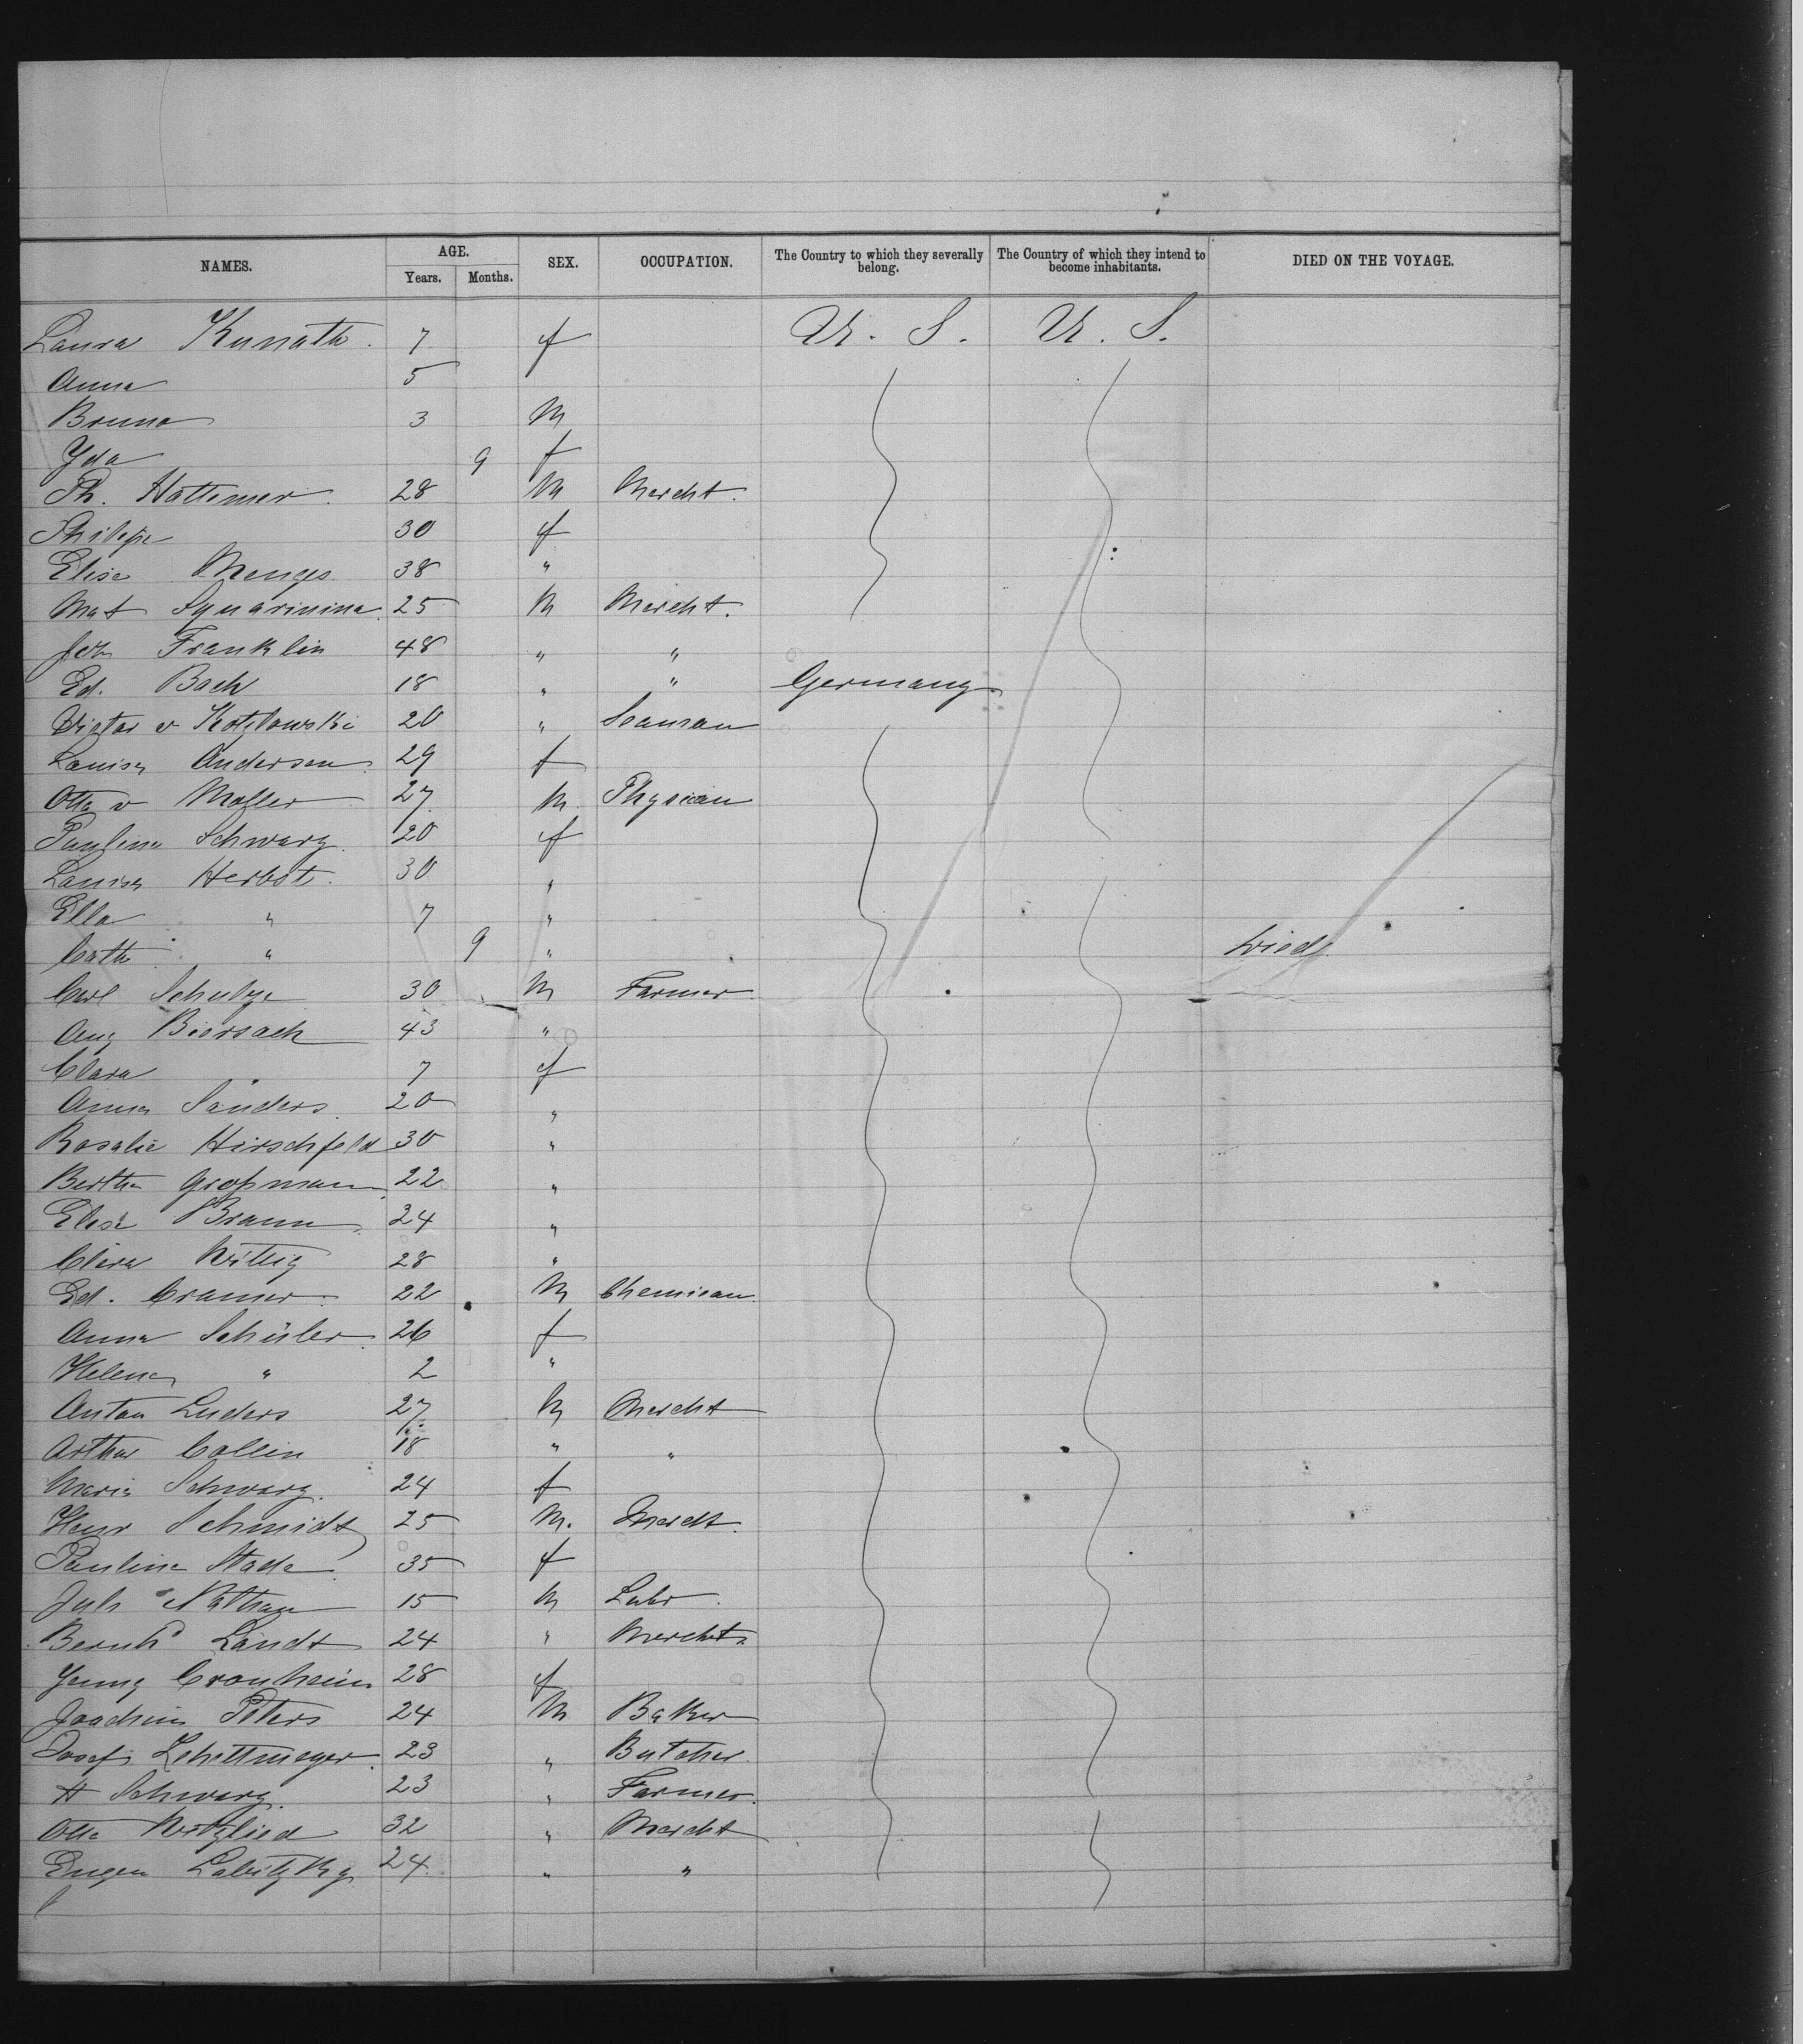 NAMES. AGE. SEX. OCCUPATION. The Country to which they severally belong. The Country of which they intend to become inhabitants. DIED ON THE VOYAGE.
Years. Months.
Laura Kunath. 7 f U. S. U. S.
Anna 5
Bruno 3 M
Yda 9 f
Ph. Hattemer 28 M Mercht.
30 f
Elise Menges 38 "
Mat 25 M Mercht.
Joh Franklin 48 " "
Ed. Bach 18 " " Germany
Victor v Kotzlowski 20 " Seaman
Louise Andersen 29 f
Otto v Moller 27 M. Physician
Pauline Schwarz. 20 f
Louise Herbst. 30 "
Ella " 7 "
Cath " 9 " Died
Carl Schulze 30 M Farmer
Aug Biersach 43 "
Clara 7 f
Anna Sanders. 20 "
Rosalie Hirschfeld 30 "
Bertha Großmann 22 "
Elise Braun 24 "
Clara Wittig 28 "
Ed. Cramer 22 M Chemican
Anna Schüler 26 f
Helene " 2 "
Anton Luders 27 M Mercht
Arthur Collin 18 " "
Marie Schwarz. 24 f
Henr Schmidt 25 M. Mercht.
Pauline Stade 35 f
Jul. Nathan 15 M Labr.
Bernhd Landt 24 " Mercht.
Jenny Cronheim 28 f
Joachim Peters 24 M Baker
Josef 23 " Butcher
H Schwarz. 23 " Farmer.
Otto 32 " Mercht
Eugen Labitzky 24 " "